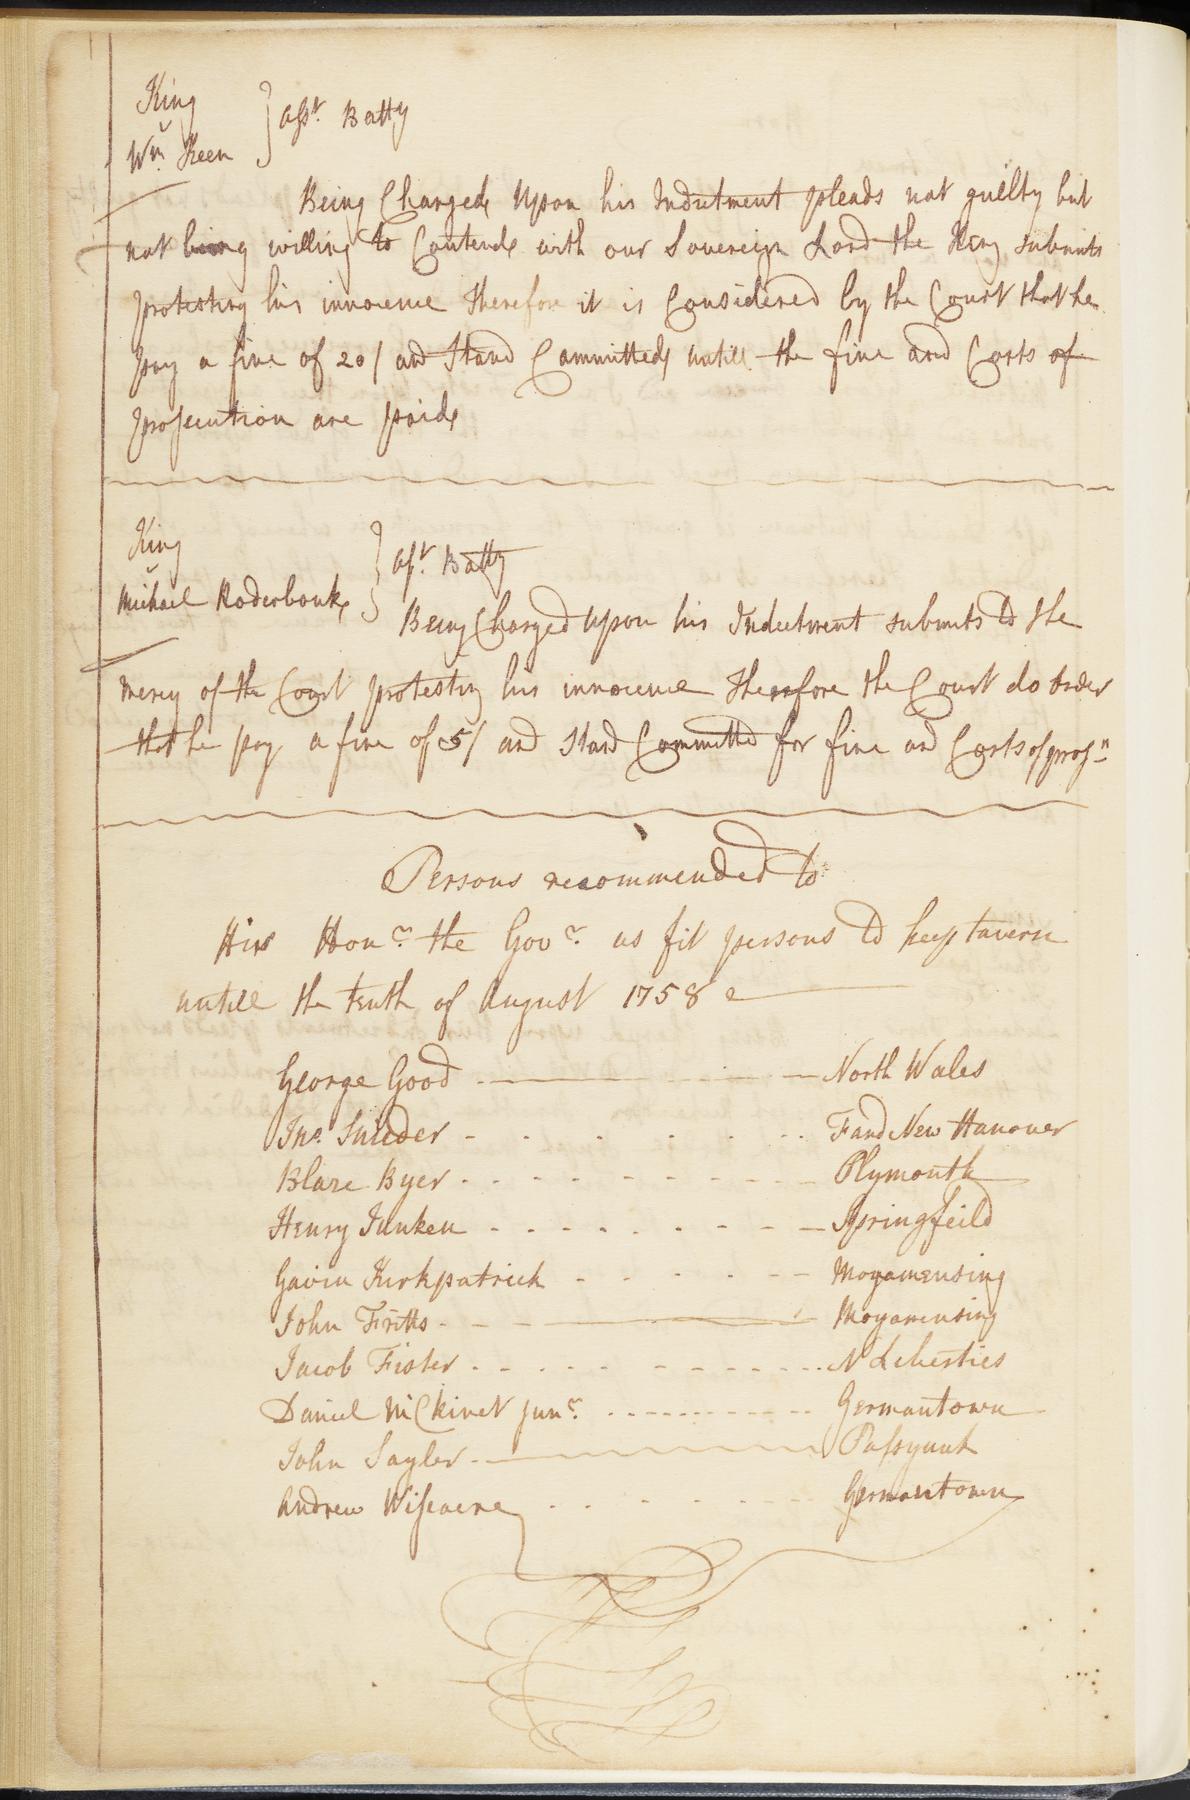 King
v
Wm. Keen
Asst. Batty
Being Charged Upon his Indictment pleads not guilty but
not being willing to Contend with our Sovereign Lord the King submits
protesting his innocence Therefore it is Considered by the Court that he
pay a fine of 20/ and Stand Committed untill the fine and Costs of
prosecution are paid
King
v
Michael Roderbouk
Ast. Batty
Being Charged Upon his Indictment submits to the
mercy of the Court protesting his innocence Therefore the Court do order
that he pay a fine of 5/ and Stand Committed for fine and Costs of prosn
Persons recommended to
His Honr. the Govr. as fit persons to keep tavern
untill the tenth of August 1758
George Good North Wales
Jno. Snieder F and New Hanover
Blaze Byer Plymouth
Henry Junken Springfeild
Gavin Kirkpatrick Moyamensing
John Fritts Moyamensing
Jacob Fister N Liberties
Daniel McKinet junr. Germantown
John Sayler Passyunk
Andrew Wiseacre Germantown